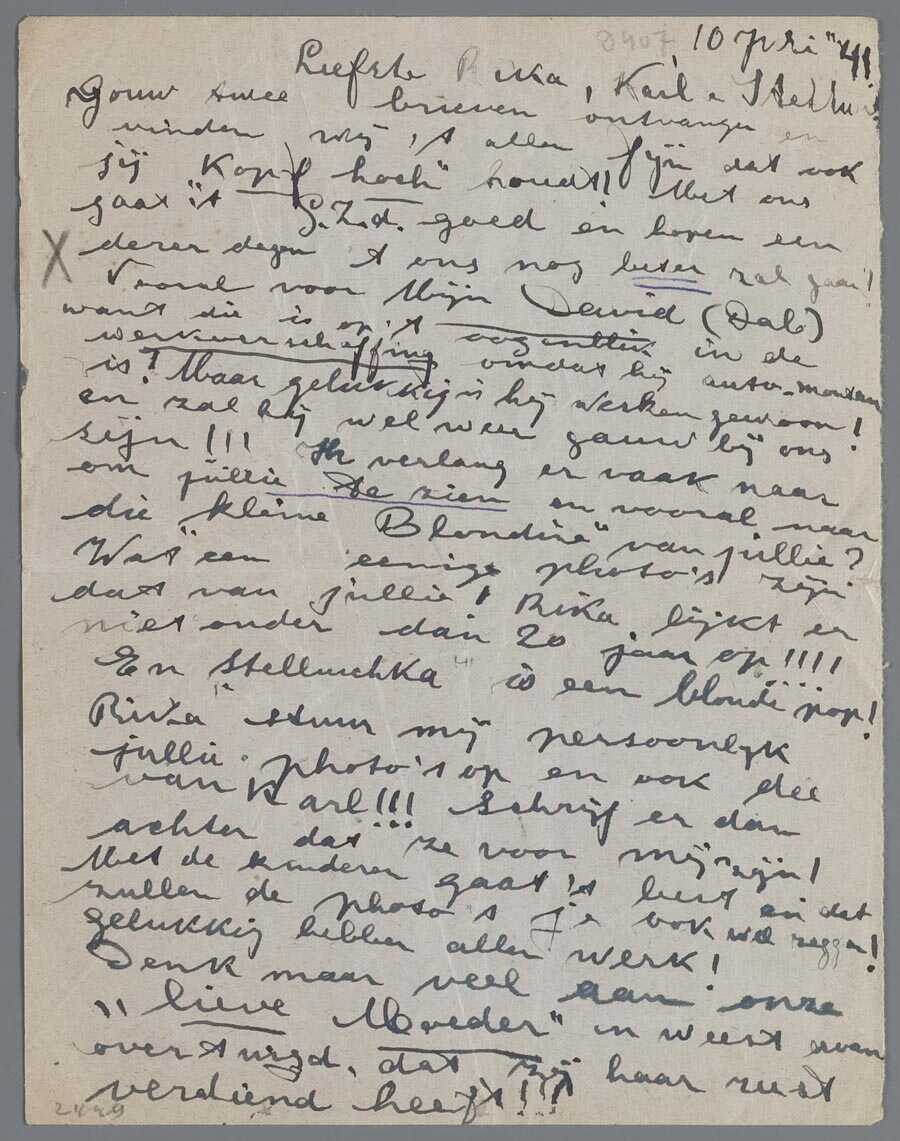 10 Juli "41
Liefste Rika, Karl &
Jouw twee brieven ontvangen en
vinden wij 't allen fijn dat ook
jij Kopf hoch" houdt! Met ons
gaat 't G.Z.d. goed en hopen een
derer dagen 't ons nog beter zal gaan!
Vooral voor Mijn David (Dab)
want die is op 't oogenblik in de
werkverschaffing omdat hij auto-monteur
is! Maar gelukkig is hij werken gewoon!
en zal hij wel weer gauw bij ons
zijn!!! Ik verlang er vaak naar
om jullie te zien en vooral naar
die kleine Blondine" van jullie?
Wat" een eenige photo's zijn
dat van jullie! Rika lijkt er
niet ouder dan 20 jaar op!!!!
En Stelluschka" is een blonde pop!
Rika" stuur mij persoonlijk
jullie photo's op en ook die
van Karl!!! Schrijf er dan
achter dat ze voor mij zijn!
Met de kinderen gaat 't best en dat
zullen de photo's je ook wel zeggen!
gelukkig hebben allen werk!
Denk maar veel aan onze
"lieve Moeder" en weest ervan
overtuigd, dat zij haar rust
verdiend heeft!!!
2449